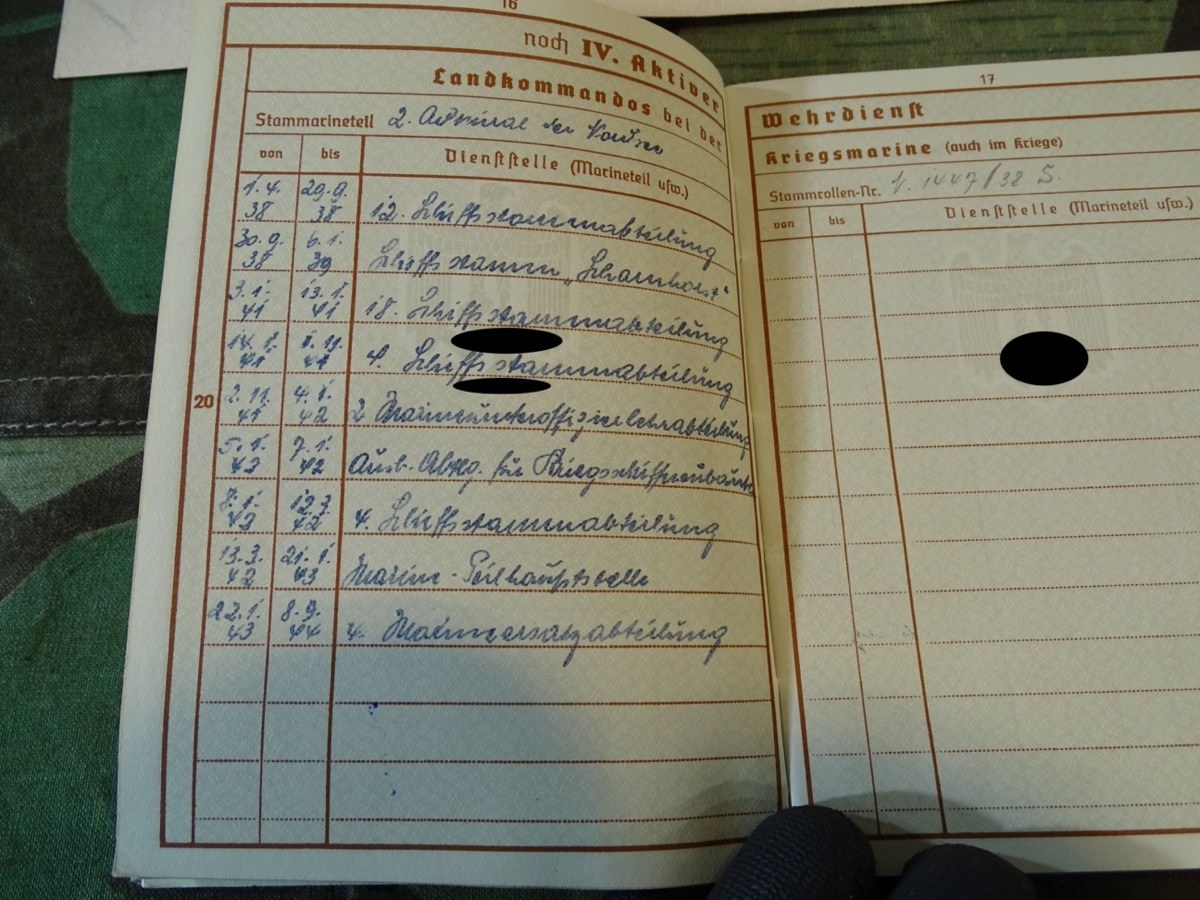 16
noch IV. Aktiver
Landkommandos bei der
Stammarineteil 2. Admiral der Nordsee
von bis Dienststelle (Marineteil usw.)
1.4. 38 29.9. 38 12. Schiffsstammabteilung
30.9. 38 6.1. 39 Schiffsstamm „Scharnhorst“
3.1. 41 13.1. 41 18. Schiffsstammabteilung
14.1. 41 1.11. 41 4. Schiffsstammabteilung
20
2.11. 41 4.1. 42 2 Marineunteroffizierlehrabteilung
5.1. 42 7.1. 42 Ausb.-Abtlg. für Kriegsschiffneubauten
8.1. 42 12.3. 42 4. Schiffsstammabteilung
13.3. 42 21.1. 43 Marine-Peilhauptstelle
22.1. 43 8.9. 44 4. Marineersatzabteilung
17
Wehrdienst
Kriegsmarine (auch im Kriege)
Stammrollen-Nr. 1447/38 S.
von bis Dienststelle (Marineteil usw.)